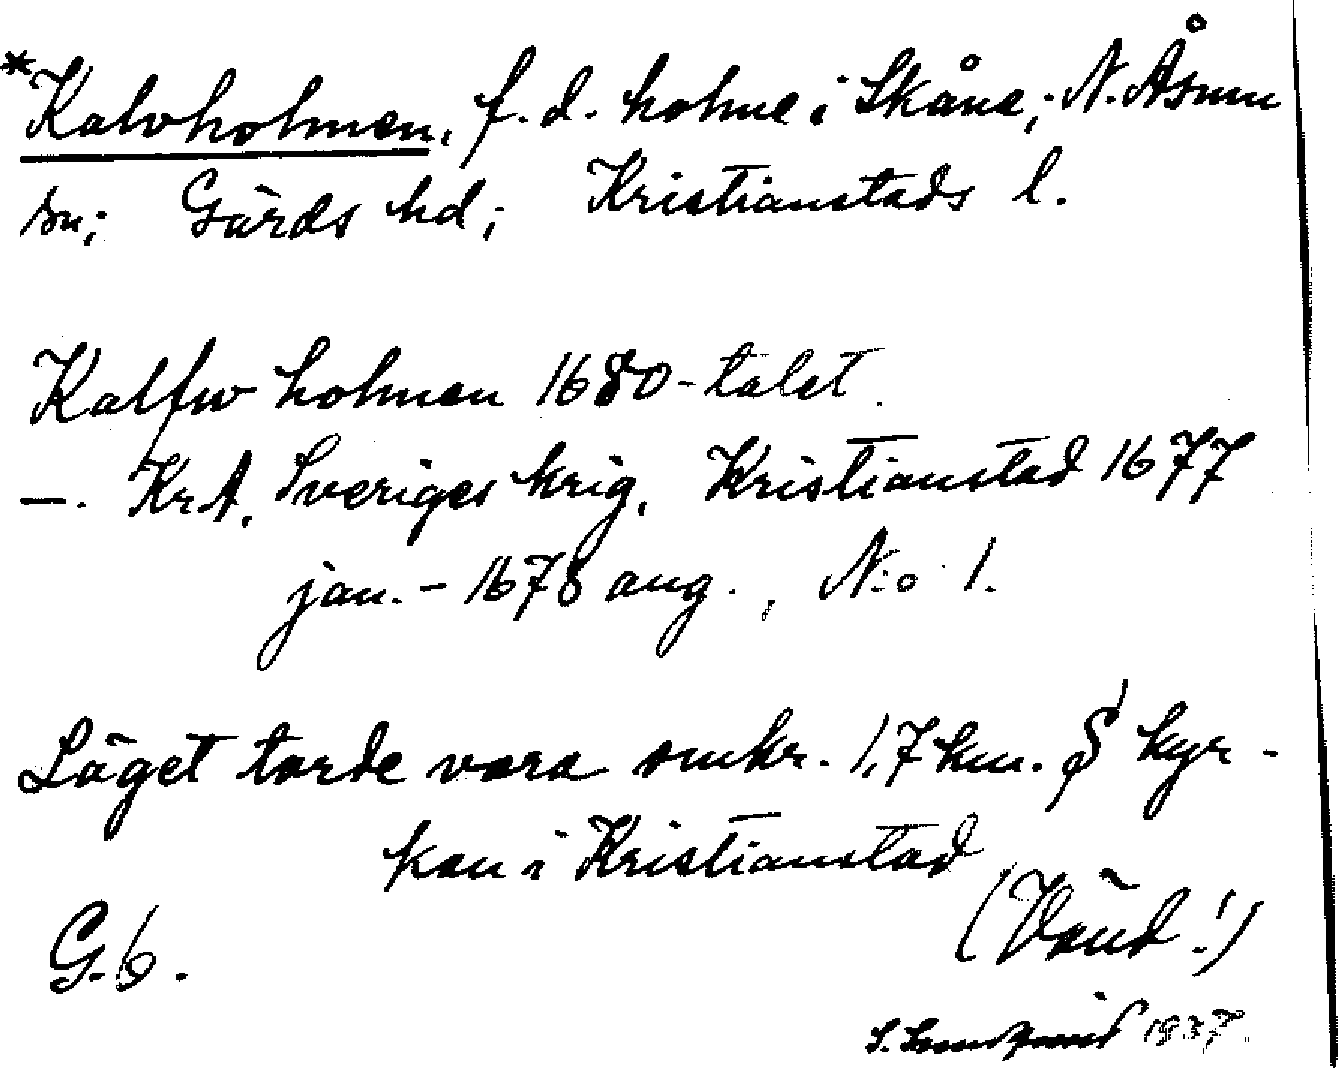 *Kalvholmen, f.d. holme i Skåne; N. Åsum
sn; Gärds hd; Kristianstads l.
Kalfw holmen 1680-talet.
—. KrA. Sveriges krig, Kristianstad 1677
jan. - 1678 aug., N:o 1.
Läget torde vara omkr. 1,7 km. S kyr-
kan i Kristianstad
(Vänd!)
G.b.
1937